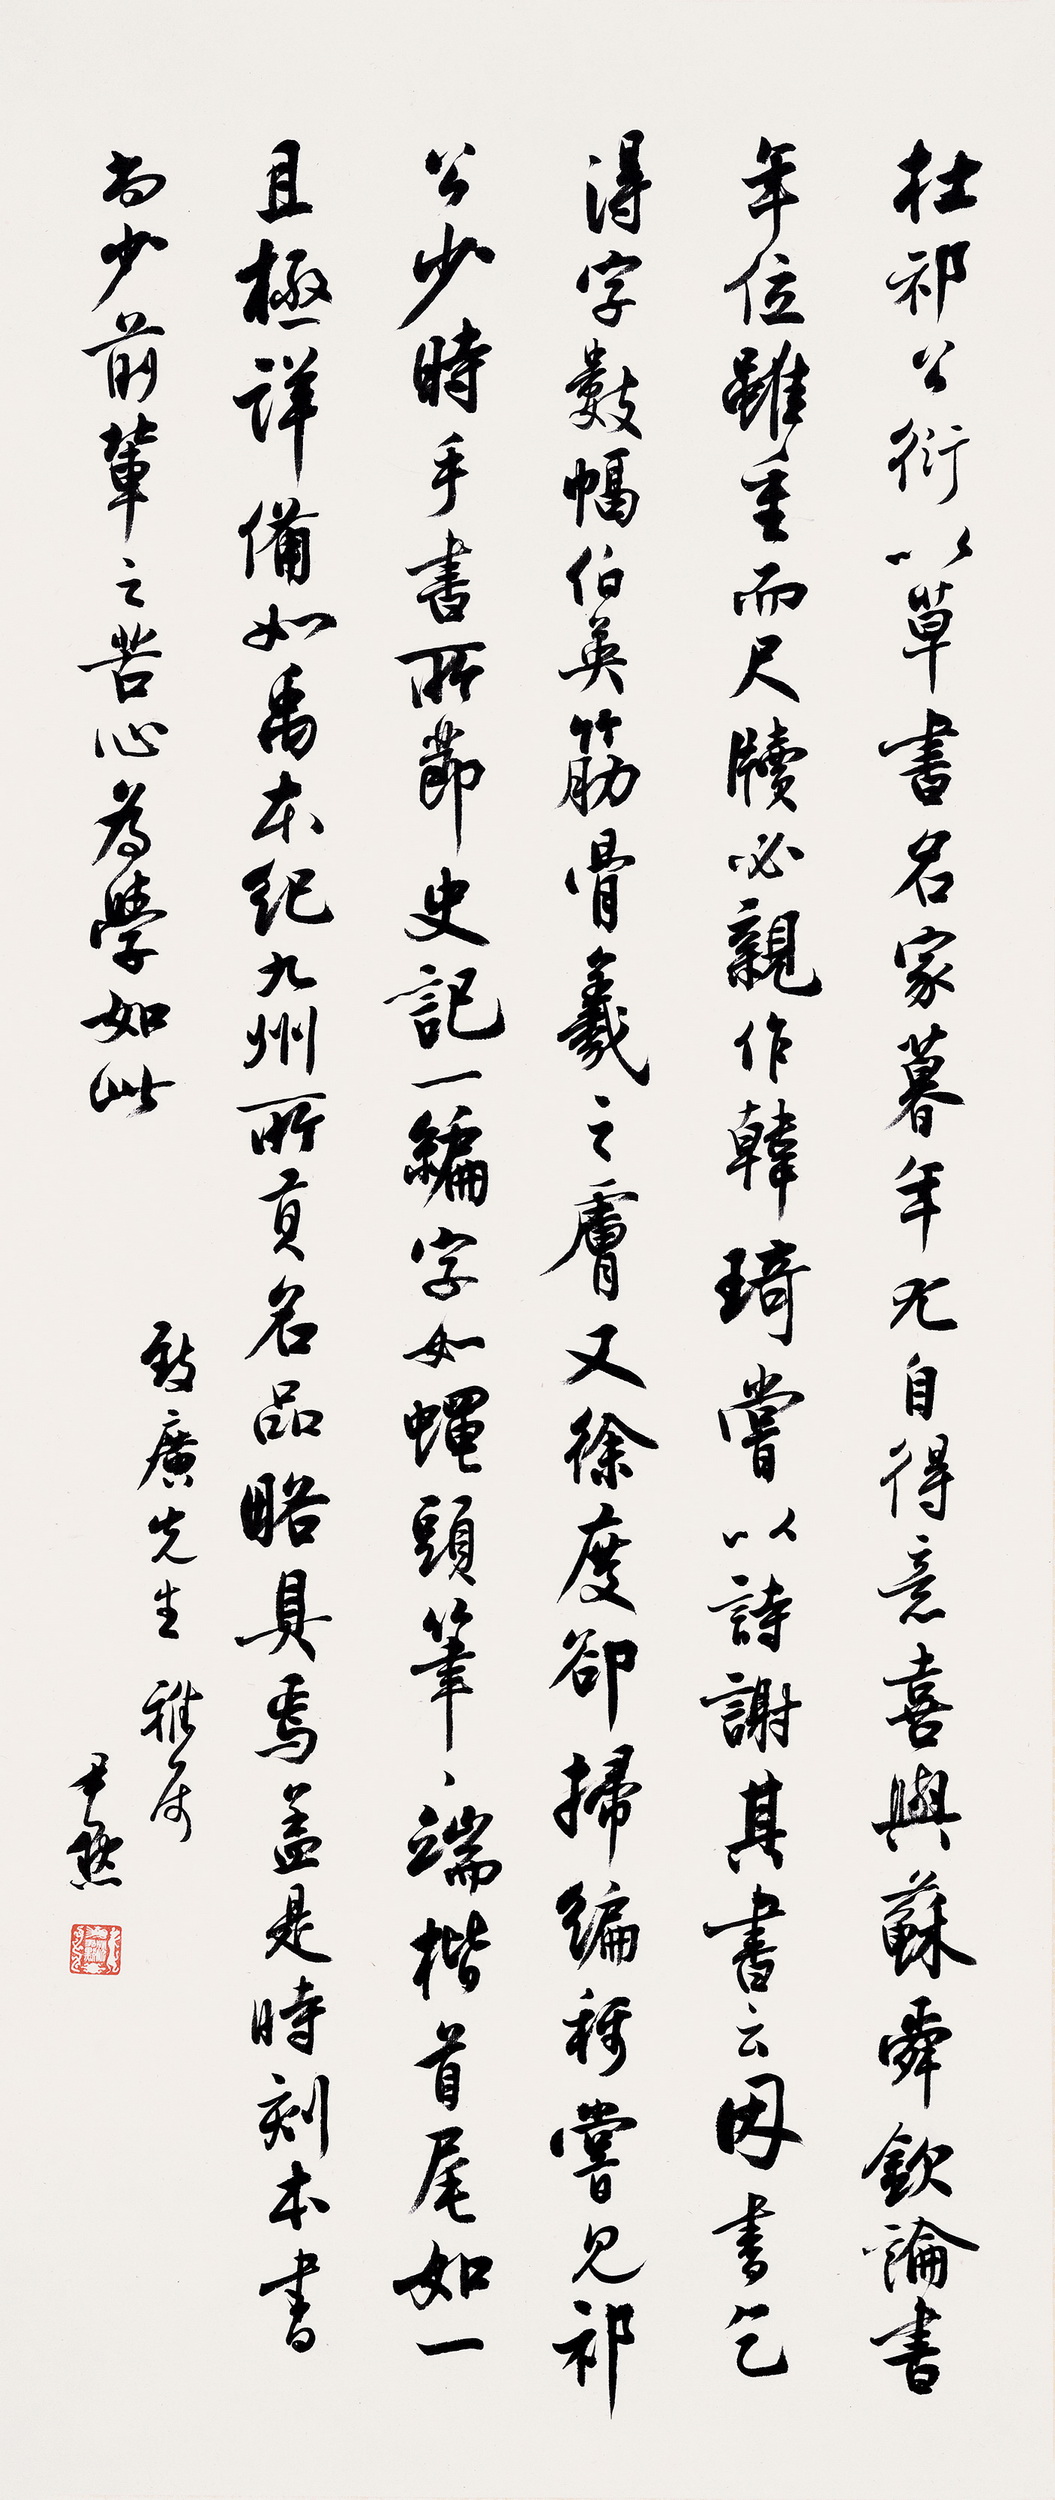 杜祁公衍以草書名家暮年尤自得意喜與蘇舜欽論書
年位雖重而尺牘必親作韓琦嘗以詩謝其書云因書乞
得字數幅伯英筋骨羲之膚又徐度卻掃編稱嘗見祁
公少時手書所節史記一編字如蠅頭筆筆端楷首尾如一
且極詳備如禹本紀九州所貢名品略具焉蓋是時刻本書
尚少前輩之苦心為學如此
致廣先生 雅属
尹默